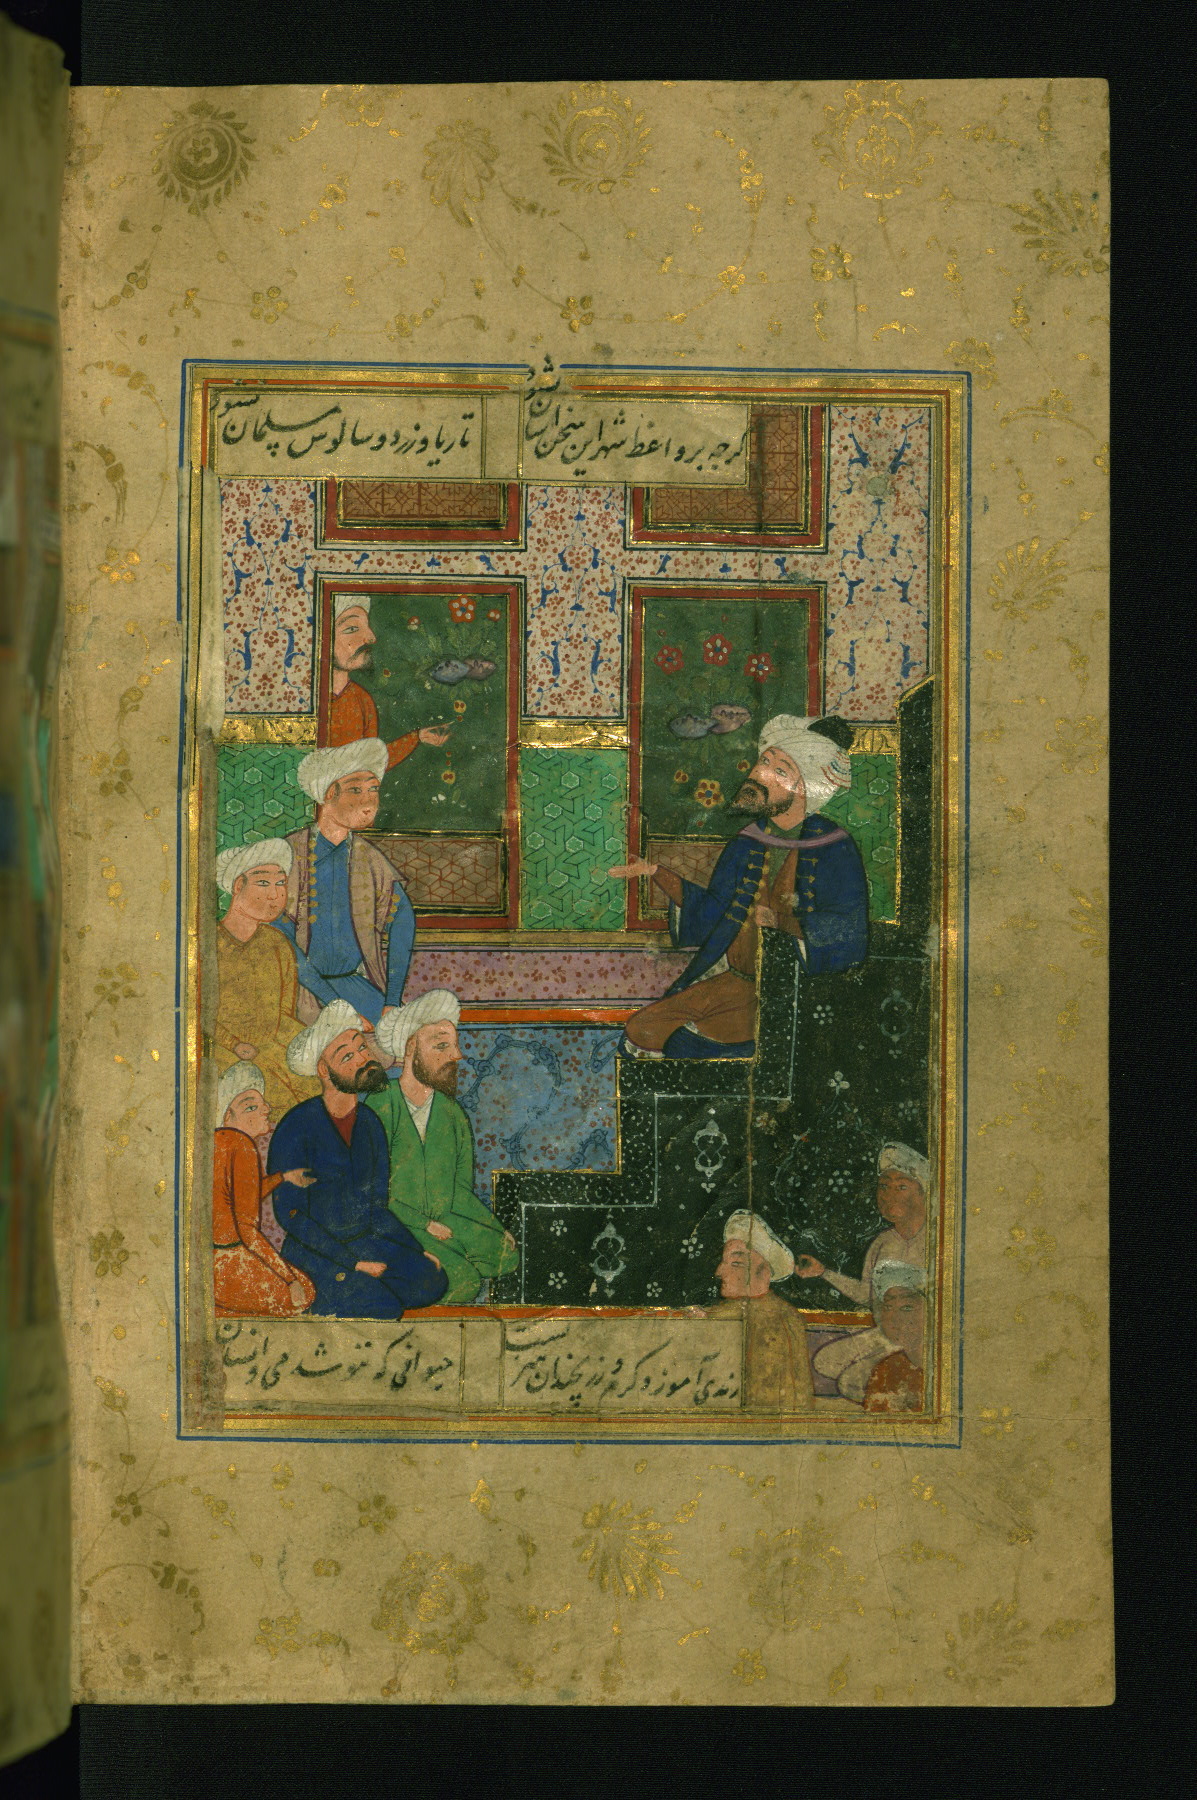 کرچه بر واعظ شهر این سخن آسان نشود
تا ریا ورزد و سالوس مسلمان نشود
رندی آموز و کرم ورز نچندان هنرست
حیوانی که ننوشد می و انسان